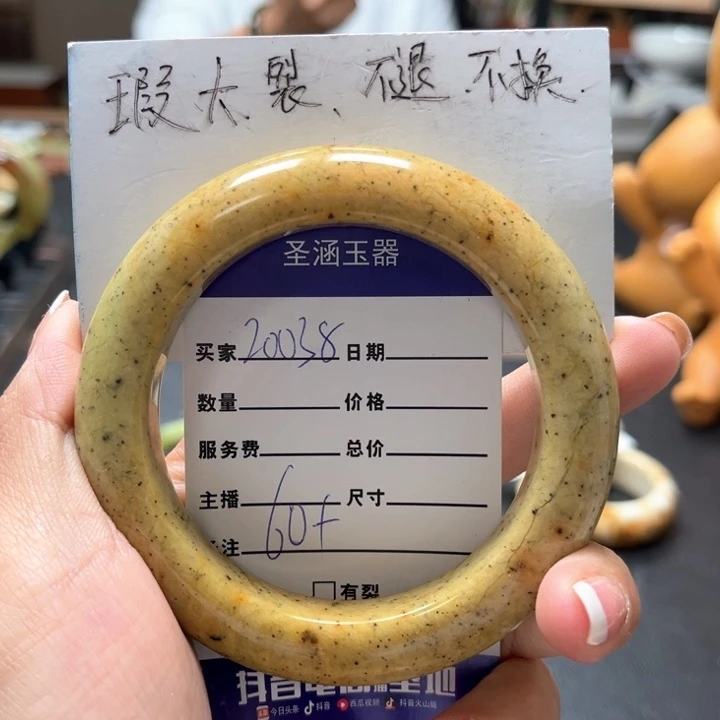 瑕大、裂、不退.不换.
圣涵玉器
买家 20038 日期
数量 价格
服务费 总价
主播 尺寸
注 60+
□有裂
抖音电商 基地
今日头条 抖音 西瓜视频 抖音火山版